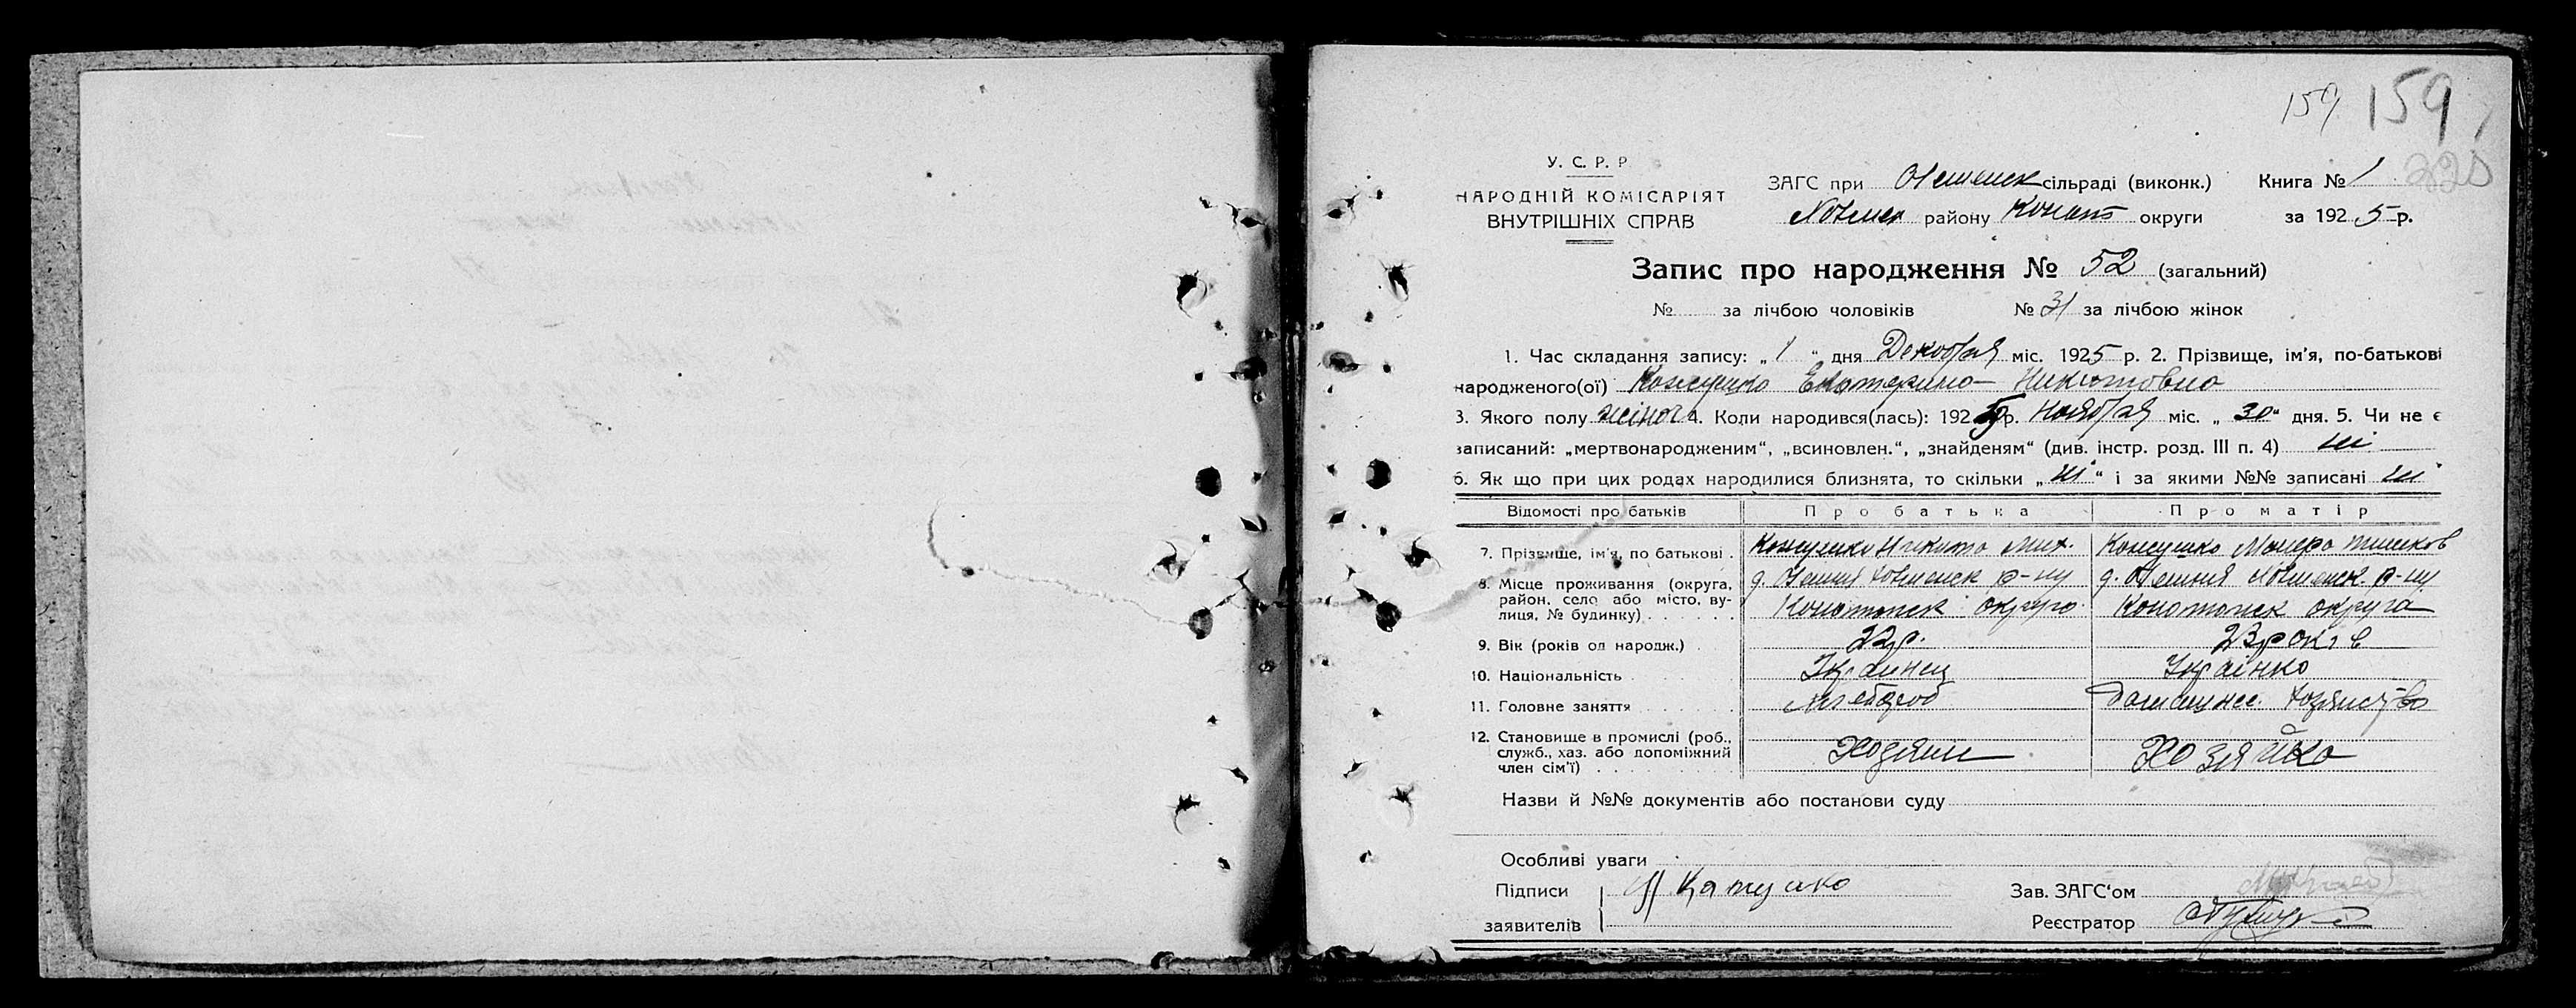 159 159
320
У. С. Р. Р
НАРОДНІЙ КОМІСАРІЯТ
ВНУТРІШНІХ СПРАВ
ЗАГС при сільраді (виконк.) Книга № 1
району Коноп округи за 1925 р.
Запис про народження № 52 (загальний)
№ за лічбою чоловіків № 31 за лічбою жінок
1. Час складання запису: „1“ дня Декабря міс. 1925 р. 2. Прізвище, ім’я, по-батькові
народженого(ої) Екатерина Никитовна
3. Якого полу жіноч 4. Коли народився(лась): 1925 р. Ноября міс. „30“ дня. 5. Чи не є
записаний: „мертвонародженим“, „всиновлен.“, „знайденям“ (див. інстр. розд. III п. 4) ні
6. Як що при цих родах народилися близнята, то скільки „ні“ і за якими №№ записані ні
Відомості про батьків Про батька Про матір
7. Прізвище, ім’я, по батькові . Никита Мих.
8. Місце проживання (округа, район, село або місто, вулиця, № будинку) р-ну р-ну
Конотопск округа Конотопск округа
9. Вік (років од народж.) 22 р. 23 років
10. Національність Украинец Украінка
11. Головне заняття Хлебороб
12. Становище в промислі (роб., служб., хаз. або допоміжний член сім’ї) Хозяин Хозяйка
Назви й №№ документів або постанови суду
Особливі уваги
Підписи Зав. ЗАГС‘ом
заявителів Реєстратор